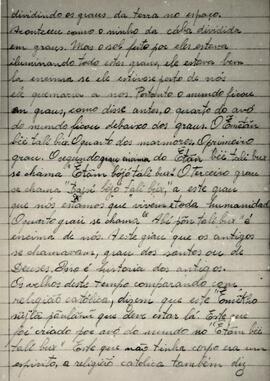 dividindo os graus da terra no espaço.
Aconteceu como o ninho da caba dividida
em graus. Mas o sol feito por eles estava
iluminando todos estes graus, ele estava bem
lá encima se ele estivesse perto de nós
ele queimaria a nos. Portanto o mundo ficou
em graus, como disse antes, o quarto do avô
do mundo ficou debaixo dos graus. O
tali bu'u. O quarto dos marmores. O primeiro
grau. O segundo grau do Etãn bëi tali bu'u
se chama "Etãn bohó tali bu'u" O terceiro grau
se chama tali bu'u", a este grau
que nós estamos que vivem toda humanidade
O quarto grau se chama " põn tali bu'u" é
encima de nós. A este grau que os antigos
se chamavam, grau dos santos ou de
Deuses. Esso é historia dos antigos.
Os velhos deste tempo comparando com
religião católica, dizem que este
que deve estar lá. Este que
foi criado por avô do mundo no "Etãn bëi
tali bu'u" Este que não tinha corpo era um
espirito, a religião catolica também diz